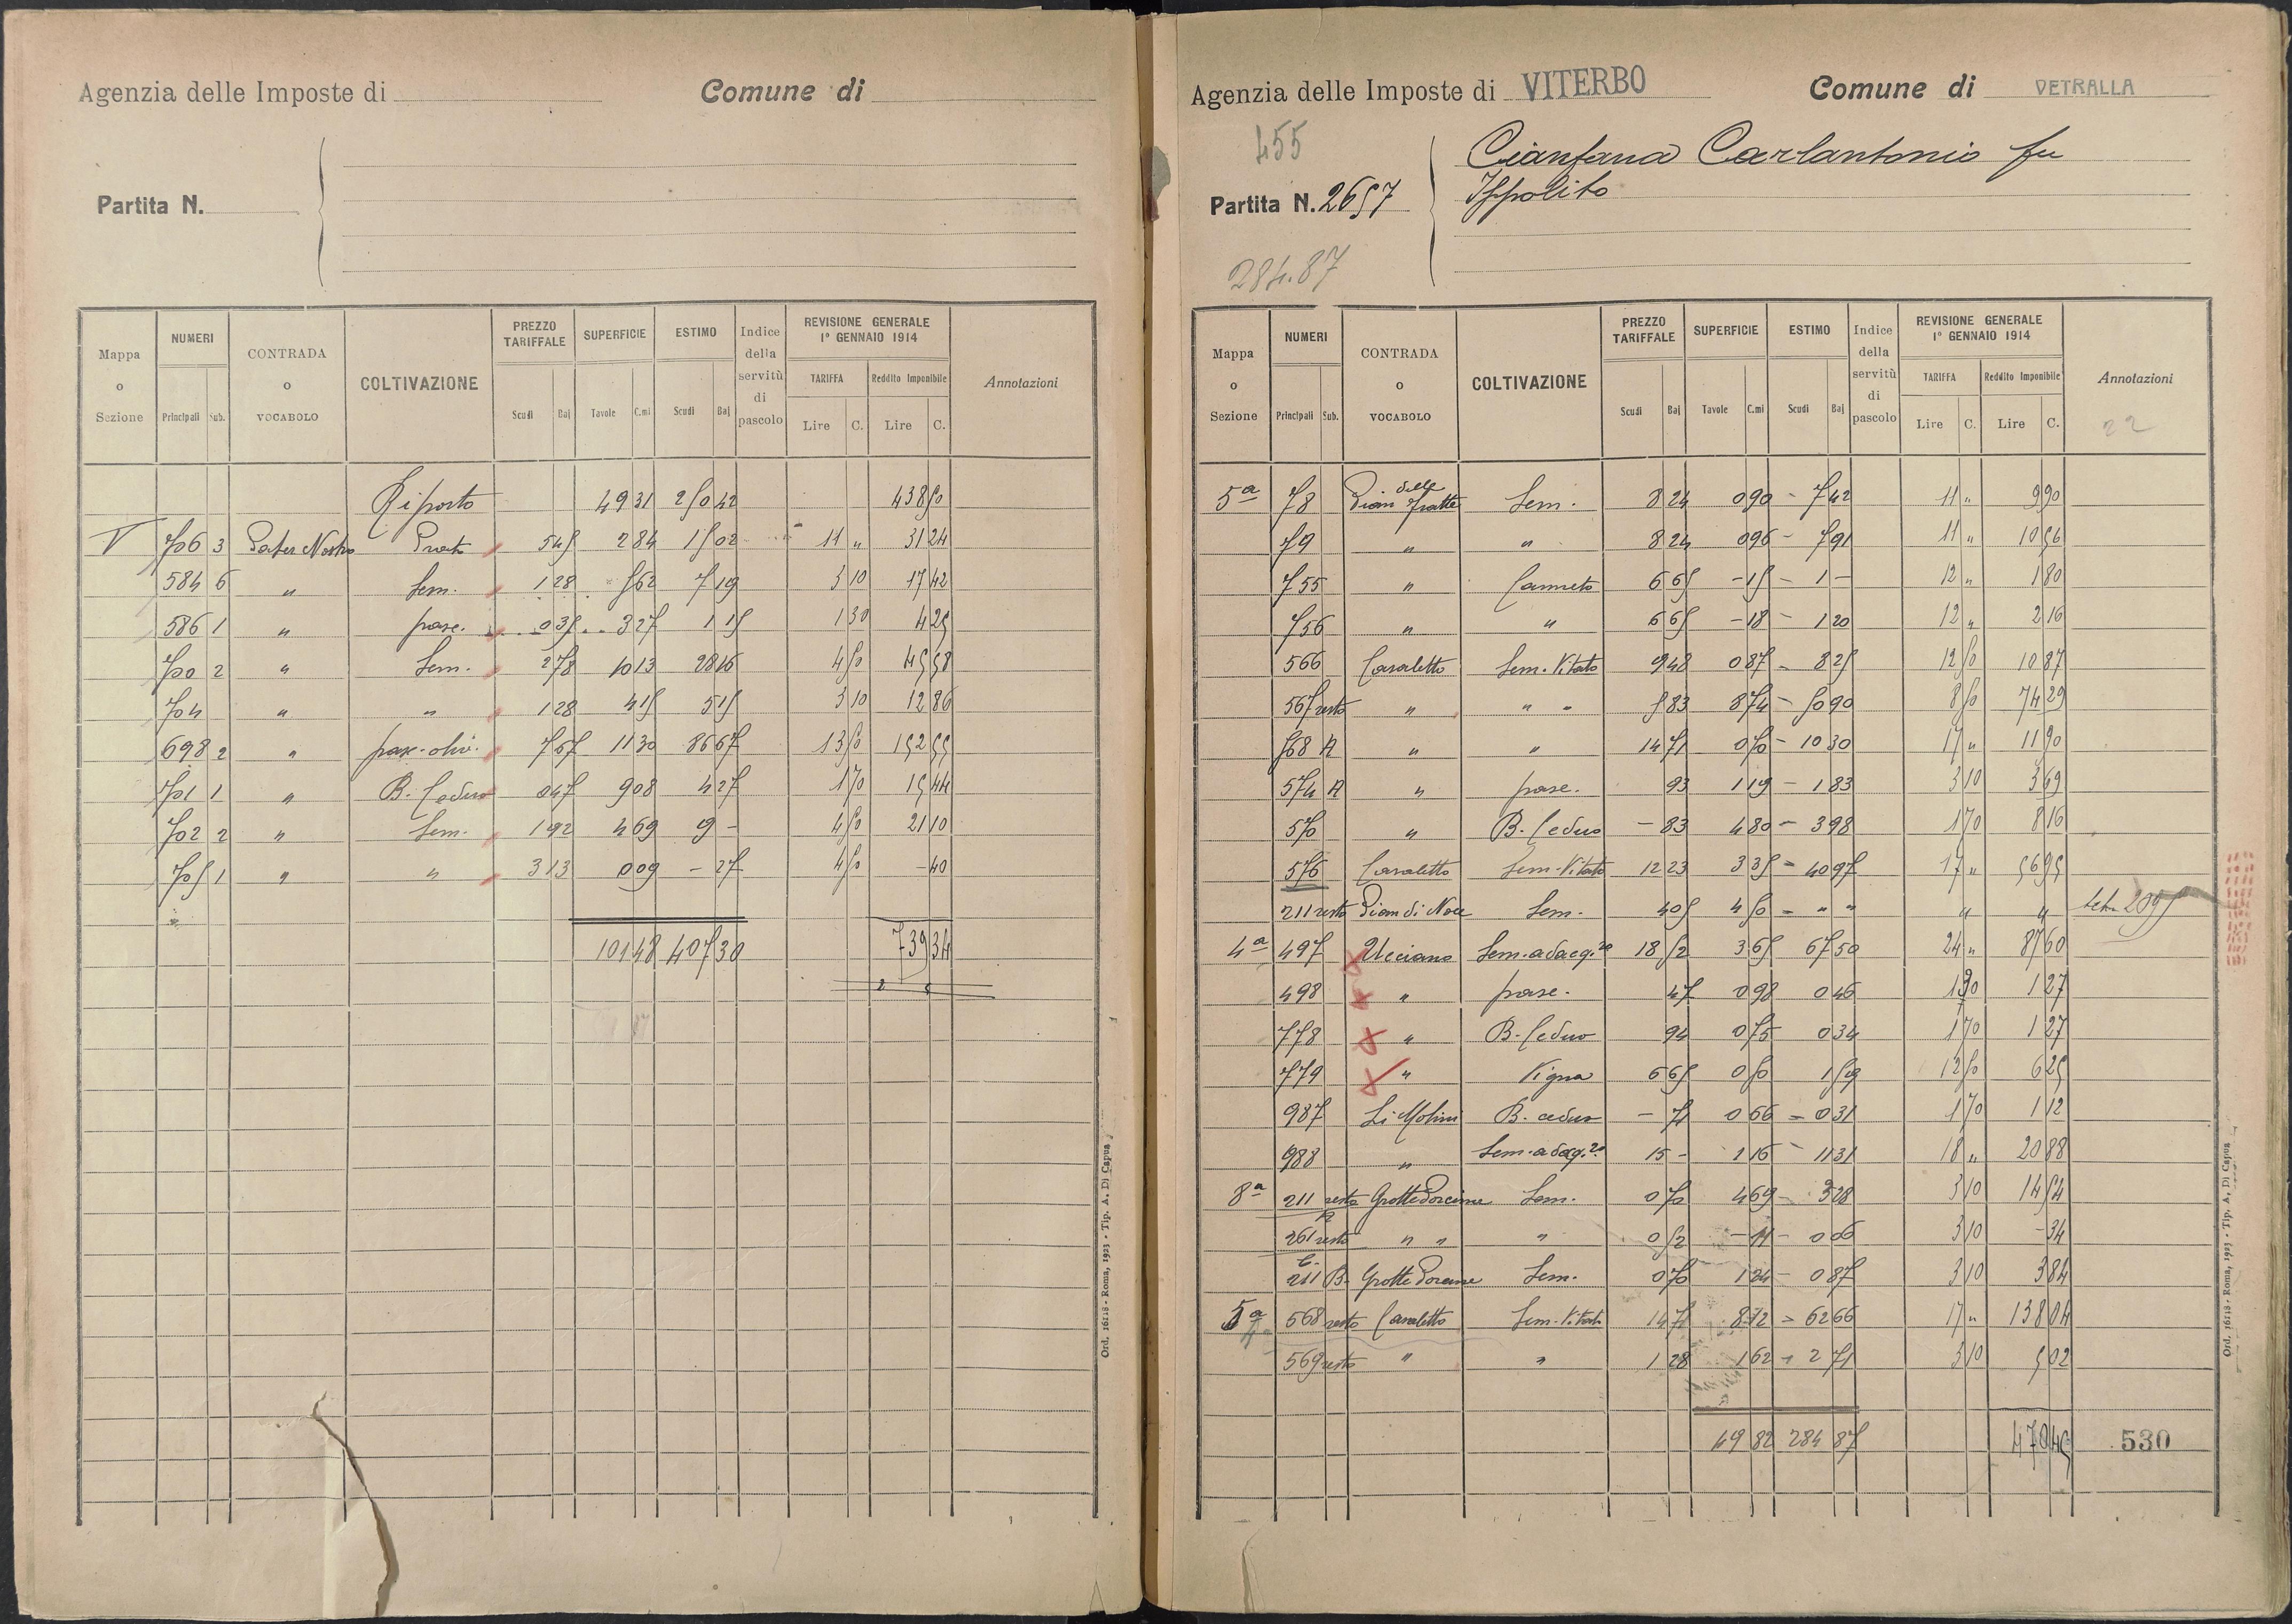 Agenzia delle Imposte di
Comune di
Partita N.
Mappa o Sezione
NUMERI
Principali Sub.
CONTRADA o VOCABOLO
COLTIVAZIONE
PREZZO TARIFFALE
Scudi Baj
SUPERFICIE
Tavole C.mi
ESTIMO
Scudi Baj
Indice della servitù di pascolo
REVISIONE GENERALE 1° GENNAIO 1914
TARIFFA
Lire C.
Reddito Imponibile
Lire C.
Annotazioni
Riporto 49 31 250 42 438 50
V 706 3 Pater Nostro Prato 5 45 2 84 15 02 11 " 31 24
584 6 " Sem. 1 28 5 62 7 19 3 10 17 42
586 1 " pasc. 0 35 3 27 1 15 1 30 4 25
700 2 " Sem. 2 78 10 13 28 16 4 50 45 58
704 " " 1 28 4 15 5 15 3 10 12 86
698 2 " pasc. oliv. 7 67 11 30 86 67 13 50 152 55
701 1 " B. Ceduo 0 47 9 08 4 27 1 70 15 44
702 2 " Sem. 1 92 4 69 9 - 4 50 21 10
705 1 " " 3 13 0 09 - 27 4 50 - 40
101 48 407 30 739 34
Ord. 16118 - Roma, 1923 - Tip. A. Di Capua
Agenzia delle Imposte di VITERBO
Comune di VETRALLA
455
Partita N. 2657
Cianfana Carlantonio fu
Ippolito
284.87
Mappa o Sezione
NUMERI
Principali Sub.
CONTRADA o VOCABOLO
COLTIVAZIONE
PREZZO TARIFFALE
Scudi Baj
SUPERFICIE
Tavole C.mi
ESTIMO
Scudi Baj
Indice della servitù di pascolo
REVISIONE GENERALE 1° GENNAIO 1914
TARIFFA
Lire C.
Reddito Imponibile
Lire C.
Annotazioni
22
5a 78 Pian delle Fratte Sem. 8 24 0 90 - 7 42 11 " 9 90
79 " " 8 24 0 96 - 7 91 11 " 10 56
755 " Canneto 6 65 - 15 - 1 - 12 " 1 80
756 " " 6 65 - 18 - 1 20 12 " 2 16
566 Casaletto Sem. Vitato 9 48 0 87 - 8 25 12 50 10 87
567 resto " " " 5 83 8 74 - 50 90 8 50 74 29
568 A " " 14 71 0 70 - 10 30 17 " 11 90
574 A " pasc. 93 1 19 - 1 83 3 10 3 69
570 " B. Ceduo - 83 4 80 - 3 98 1 70 8 16
576 Casaletto Sem. Vitato 12 23 3 35 - 40 97 17 " 56 95
211 resto Pian di Noce Sem. 4 05 4 50 - " " " "
4a 497 Ucciano Sem. adacq.to 18 52 3 65 67 50 24 " 87 60
498 " pasc. 47 0 98 0 46 1 30 1 27
778 " B. Ceduo 94 0 75 0 34 1 70 1 27
779 " Vigna 6 65 0 50 1 59 12 50 6 25
987 Li Molini B. ceduo - 71 0 66 - 0 31 1 70 1 12
988 " Sem. adaq.to 15 - 1 16 - 11 31 18 " 20 88
8a 211 resto Sem. 0 70 4 69 - 3 28 3 10 14 54
261 resto " " " 0 52 - 11 - 0 06 3 10 - 34
211 B. Sem. 0 70 1 24 - 0 87 3 10 3 84
5a 568 resto Casaletto Sem. Vitato 14 71 8 12 - 62 66 17 " 138 04
569 resto " " 1 28 1 62 - 2 71 3 10 5 02
49 82 284 87 470 45
530
Ord. 16118 - Roma, 1923 - Tip. A. Di Capua